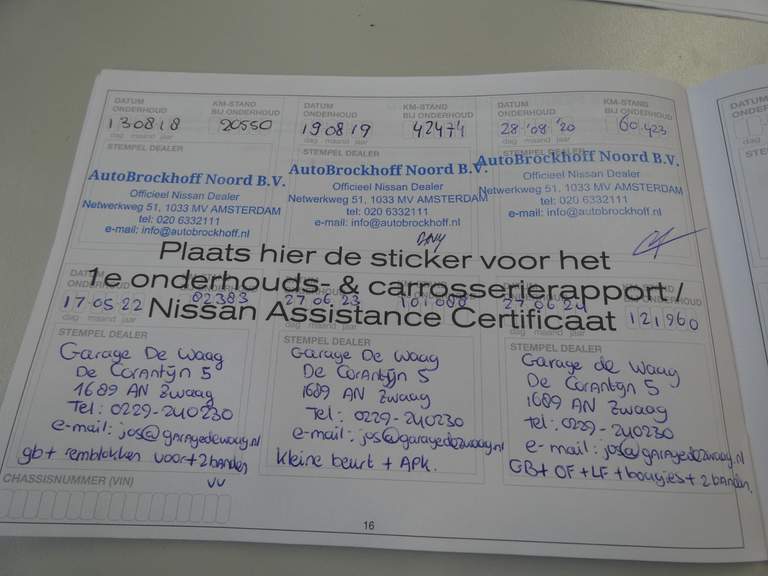 DATUM ONDERHOUD KM-STAND BIJ ONDERHOUD DATUM ONDERHOUD KM-STAND BIJ ONDERHOUD DATUM ONDERHOUD KM-STAND BIJ ONDERHOUD
130818 20550 190819 42471 28 '08 '20 60 423
dag maand jaar dag maand jaar dag maand jaar
STEMPEL DEALER STEMPEL DEALER STEMPEL DEALER
AutoBrockhoff Noord B.V. AutoBrockhoff Noord B.V. AutoBrockhoff Noord B.V.
Officieel Nissan Dealer Officieel Nissan Dealer Officieel Nissan Dealer
Netwerkweg 51, 1033 MV AMSTERDAM Netwerkweg 51, 1033 MV AMSTERDAM Netwerkweg 51, 1033 MV AMSTERDAM
tel: 020 6332111 tel: 020 6332111 tel: 020 6332111
e-mail: info@autobrockhoff.nl e-mail: info@autobrockhoff.nl e-mail: info@autobrockhoff.nl
Plaats hier de sticker voor het
1e onderhouds- & carrosserierapport /
Nissan Assistance Certificaat
17 05 22 82383 27 06 23 101088 27 06 24 121960
STEMPEL DEALER STEMPEL DEALER STEMPEL DEALER
Garage De Waag Garage De Waag Garage de Waag
De Corantijn 5 De Corantijn 5 De Corantijn 5
1689 AN Zwaag 1689 AN Zwaag 1689 AN Zwaag
Tel: 0229-240230 Tel: 0229-240230 Tel: 0229-240230
e-mail: jos@garagedewaag.nl e-mail: jos@garagedewaag.nl e-mail: jos@garagedewaag.nl
gb + remblokken voor + 2 banden kleine beurt + APK. GB + OF + LF + bougies + 2 banden.
VV
CHASSISNUMMER (VIN)
16